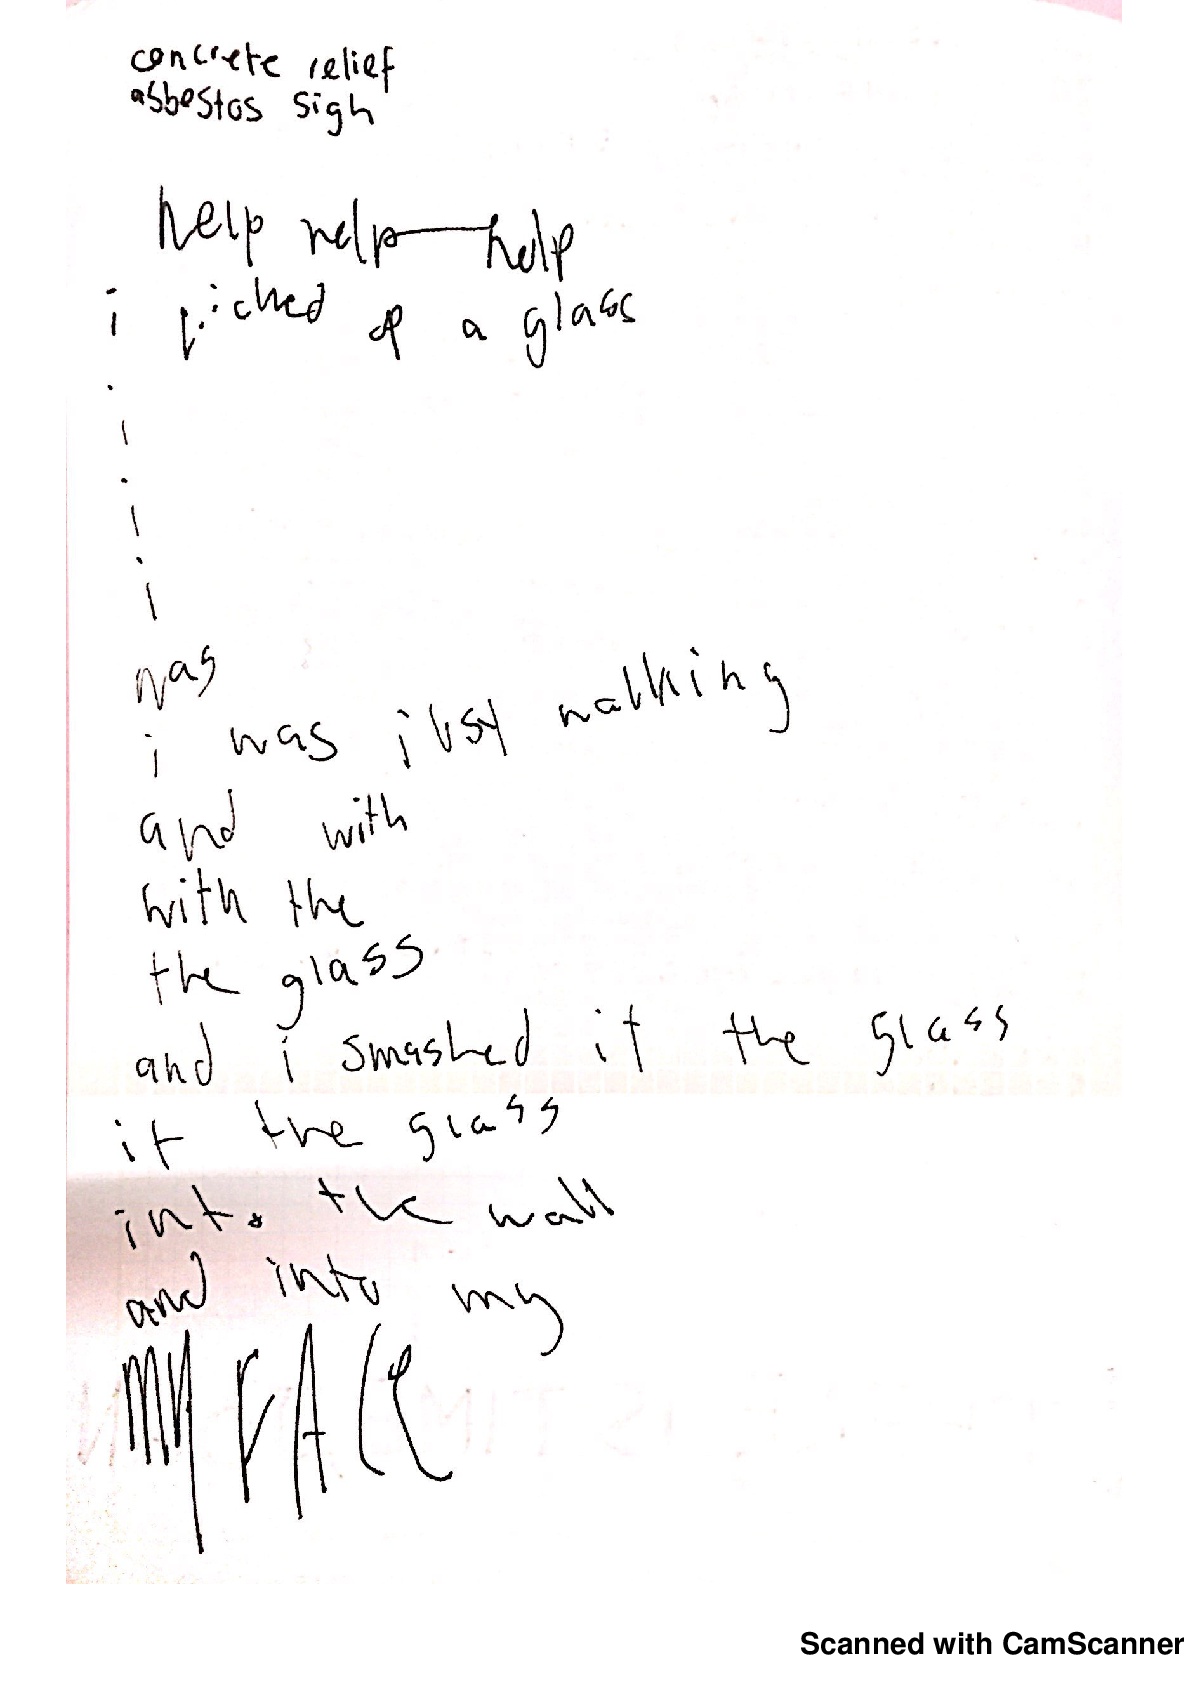 concrete relief
asbestos sigh
help help—help
i picked up a glass
i
i
i
was
i was jusy walking
and with
with the
the glass
and i smashed it the glass
it the glass
into the wall
and into my
MY FACE
Scanned with CamScanner